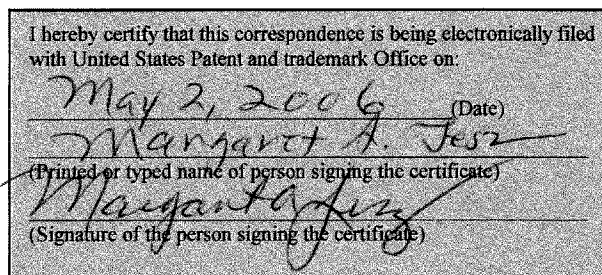 I hereby certify that this correspondence is being electronically filed
with United States Patent and trademark Office on:
May 2, 2006 (Date)
Margaret A. Jesz
(Printed or typed name of person signing the certificate)
Margaret A Jesz
(Signature of the person signing the certificate)